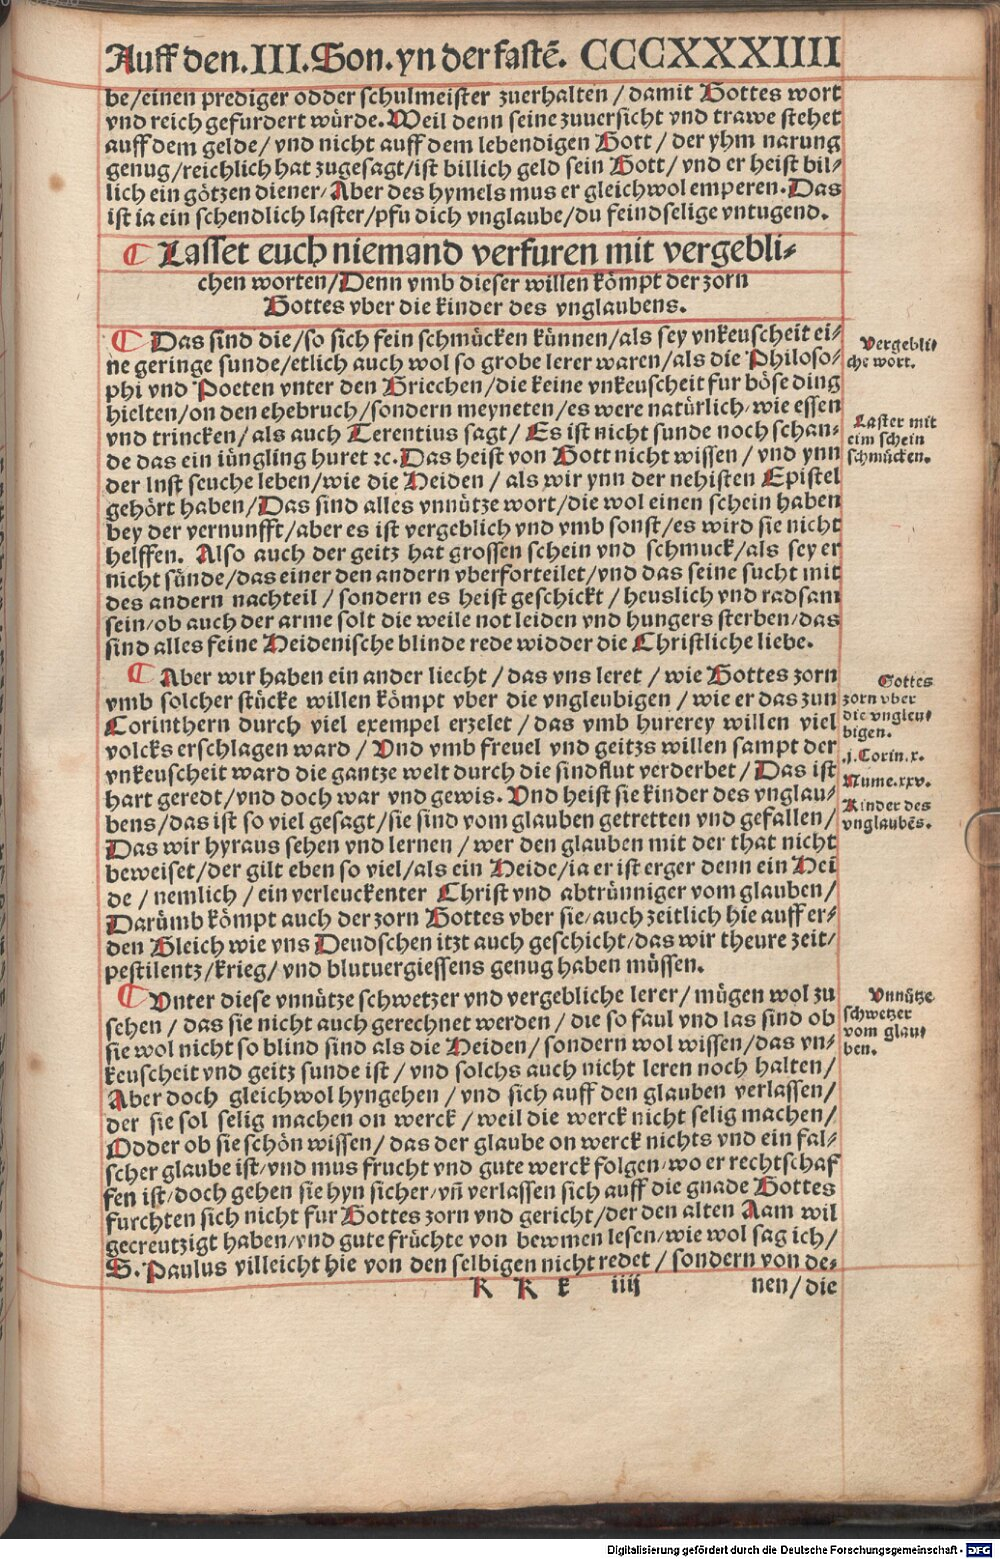 Auff den .III. Son. yn der fastẽ. CCCXXXIIII
be/einen prediger odder schulmeister zuerhalten / damit Gottes wort
vnd reich gefurdert würde. Weil denn seine zuuersicht vnd trawe stehet
auff dem gelde/ vnd nicht auff dem lebendigen Gott / der yhm narung
genug/reichlich hat zugesagt/ist billich geld sein Gott/ vnd er heist bil-
lich ein götzen diener/ Aber des hymels mus er gleichwol emperen. Das
ist ia ein schendlich laster/pfu dich vnglaube/du feindselige vntugend.
¶ Lasset euch niemand verfuren mit vergebli-
chen worten/Denn vmb dieser willen kömpt der zorn
Gottes vber die kinder des vnglaubens.
¶ Das sind die/so sich fein schmücken künnen/als sey vnkeuscheit ei-
ne geringe sunde/etlich auch wol so grobe lerer waren/als die Philoso-
phi vnd Poeten vnter den Griechen/die keine vnkeuscheit fur böse ding
hielten/on den ehebruch/sondern meyneten/es were natürlich/wie essen
vnd trincken/als auch Terentius sagt/ Es ist nicht sunde noch schan-
de das ein iüngling huret ꝛc. Das heist von Gott nicht wissen / vnd ynn
der lust seuche leben/wie die Heiden / als wir ynn der nehisten Epistel
gehört haben/Das sind alles vnnütze wort/die wol einen schein haben
bey der vernunfft/aber es ist vergeblich vnd vmb sonst/es wird sie nicht
helffen. Also auch der geitz hat grossen schein vnd schmuck/als sey er
nicht sünde/das einer den andern vberforteilet/vnd das seine sucht mit
des andern nachteil / sondern es heist geschickt / heuslich vnd radsam
sein/ob auch der arme solt die weile not leiden vnd hungers sterben/das
sind alles feine Heidenische blinde rede widder die Christliche liebe.
Vergebli-
che wort.
Laster mit
eim schein
schmücken.
¶ Aber wir haben ein ander liecht / das vns leret / wie Gottes zorn
vmb solcher stücke willen kömpt vber die vngleubigen / wie er das zun
Corinthern durch viel exempel erzelet / das vmb hurerey willen viel
volcks erschlagen ward / Vnd vmb freuel vnd geitzs willen sampt der
vnkeuscheit ward die gantze welt durch die sindflut verderbet / Das ist
hart geredt/vnd doch war vnd gewis. Vnd heist sie kinder des vnglau-
bens/das ist so viel gesagt/sie sind vom glauben getretten vnd gefallen/
Das wir hyraus sehen vnd lernen / wer den glauben mit der that nicht
beweiset/der gilt eben so viel/als ein Heide/ia er ist erger denn ein Hei
de / nemlich / ein verleuckenter Christ vnd abtrünniger vom glauben/
Darümb kömpt auch der zorn Gottes vber sie/auch zeitlich hie auff er-
den Gleich wie vns Deudschen itzt auch geschicht/das wir theure zeit/
pestilentz/krieg/ vnd blutuergiessens genug haben müssen.
Gottes
zorn vber
die vngleu-
bigen.
.j. Corin.x.
Nume.xxv.
Kinder des
vnglaubẽs.
¶ Vnter diese vnnütze schwetzer vnd vergebliche lerer/ mügen wol zu
sehen / das sie nicht auch gerechnet werden / die so faul vnd las sind ob
sie wol nicht so blind sind als die Heiden/ sondern wol wissen/das vn-
keuscheit vnd geitz sunde ist / vnd solchs auch nicht leren noch halten/
Aber doch gleichwol hyngehen / vnd sich auff den glauben verlassen/
der sie sol selig machen on werck / weil die werck nicht selig machen/
Odder ob sie schön wissen/ das der glaube on werck nichts vnd ein fal-
scher glaube ist/vnd mus frucht vnd gute werck folgen/wo er rechtschaf
fen ist/doch gehen sie hyn sicher/vñ verlassen sich auff die gnade Gottes
furchten sich nicht fur Gottes zorn vnd gericht/der den alten Aam wil
gecreutzigt haben/vnd gute früchte von bewmen lesen/wie wol sag ich/
S. Paulus villeicht hie von den selbigen nicht redet / sondern von de-
Vnnütze
schwetzer
vom glau-
ben.
K K k iiij nen/die
Digitalisierung gefördert durch die Deutsche Forschungsgemeinschaft - DFG